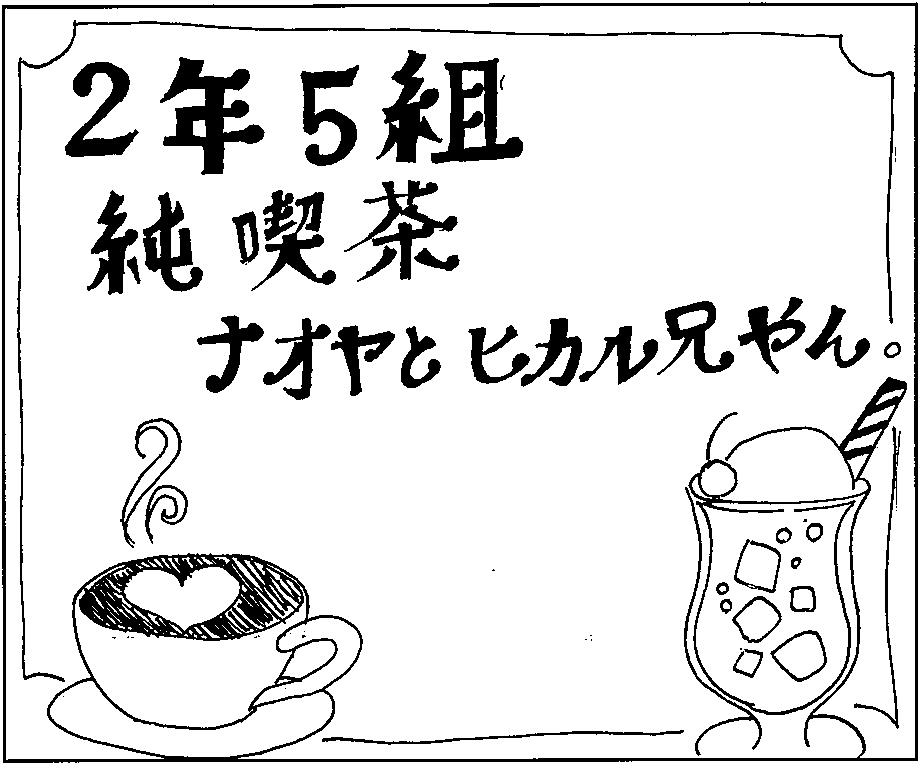 2年5組
純喫茶
ナオヤとヒカル兄やん。